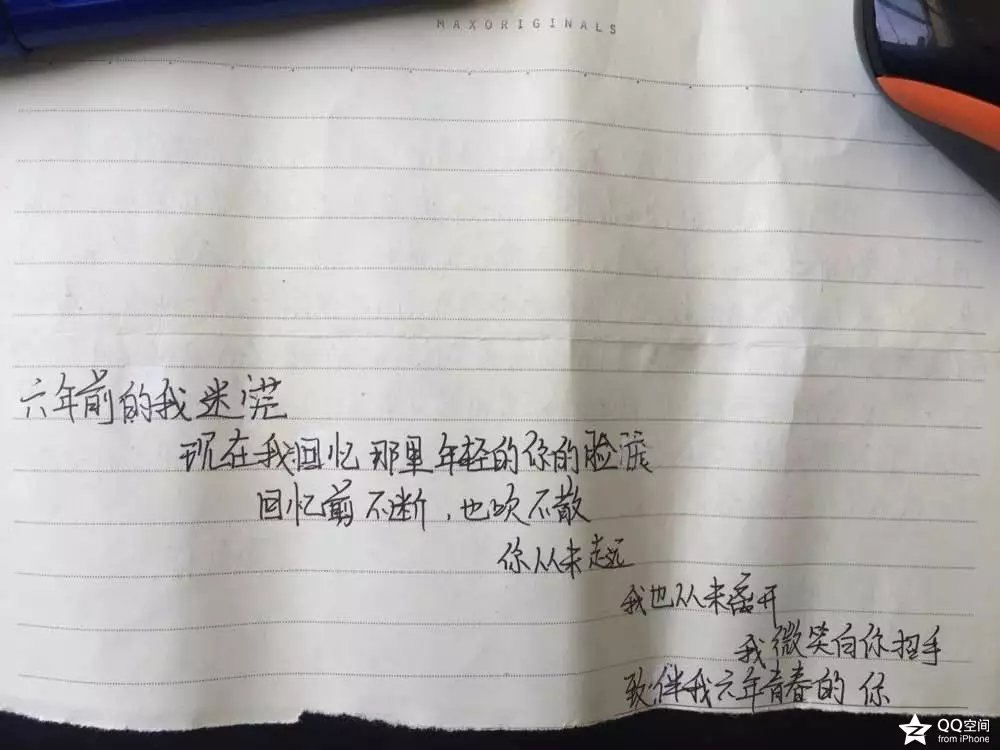 MAXORIGINALS
六年前的我迷茫
现在我回忆那里年轻的你的脸涯
回忆剪不断，也吹不散
你从来走远
我也从来离开
我微笑白你招手
致伴我六年青春的你
QQ空间
from iPhone